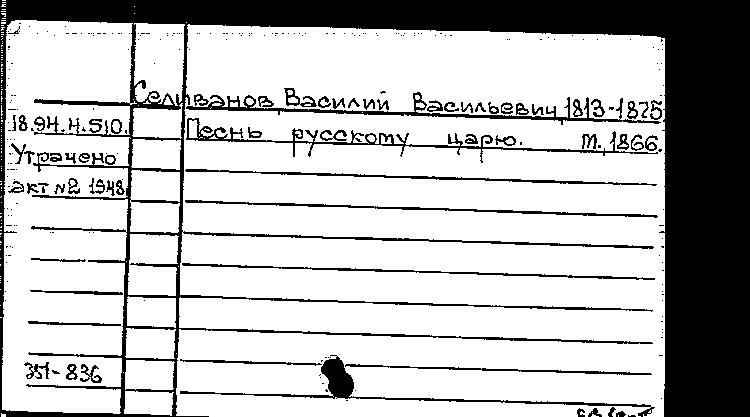 Селиванов Василий Васильевич, 1813-1875
18.94.4.510. Песнь русскому царю. М., 1866.
Утрачено
акт №2 1948
351-836